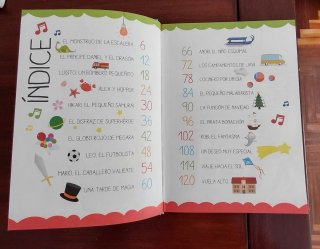 ÍNDICE
EL MONSTRUO DE LA ESCALERA 6
EL PRÍNCIPE DANIEL Y EL DRAGÓN 12
LUISITO, UN BOMBERO PEQUEÑITO 18
ÁLEX Y HOPPER 24
HIKARI, EL PEQUEÑO SAMURÁI 30
EL DISFRAZ DE SUPERHÉROE 36
EL GLOBO ROJO DE MEGARA 42
LEO, EL FUTBOLISTA 48
MARIO, EL CABALLERO VALIENTE 54
UNA TARDE DE MAGIA 60
66 AMOK, EL NIÑO ESQUIMAL
72 LOS CAMPAMENTOS DE LUNA
78 COCINERO POR UN DÍA
84 EL PEQUEÑO MALABARISTA
90 LA FUNCIÓN DE NAVIDAD
96 EL PIRATA BONACHÓN
102 ROBI, EL FANTASMA
108 UN DESEO MUY ESPECIAL
114 VIAJE HACIA EL SOL
120 VUELA ALTO